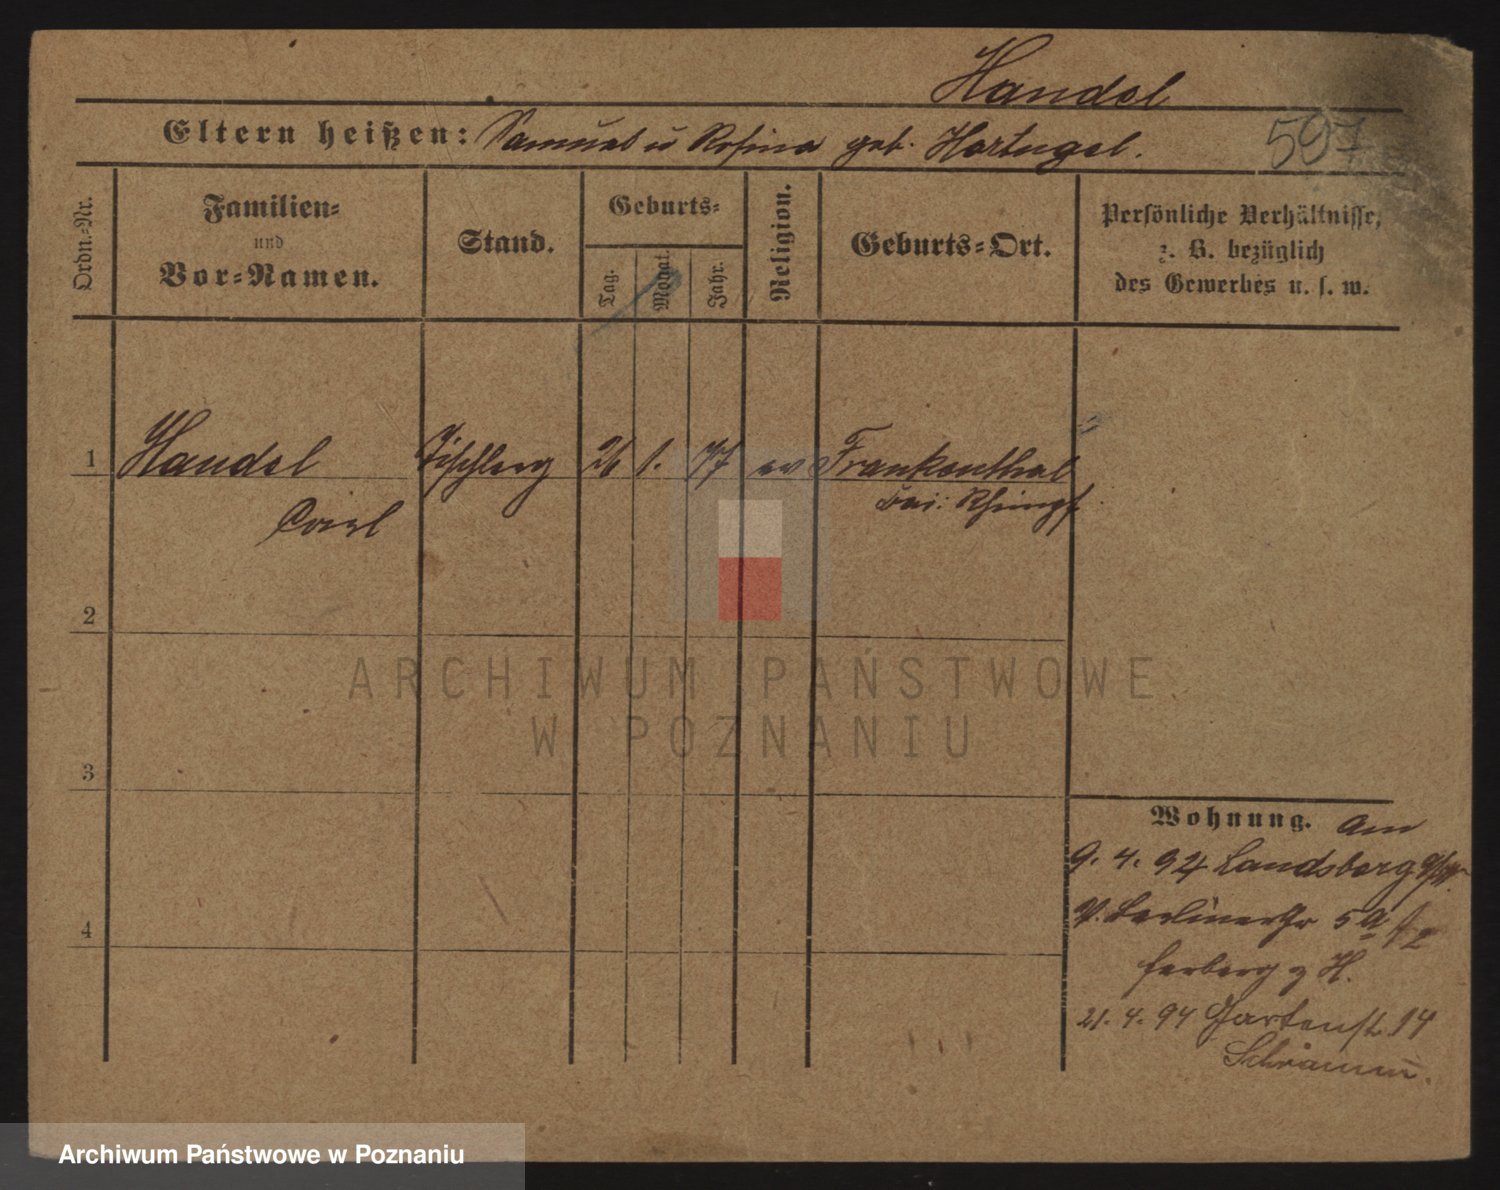 Handel
Eltern heißen: Samuel u Rosina geb. Hartugel.
597
Ordn.-Nr.
Familien-
und
Vor-Namen.
Stand.
Geburts-
Tag.
Monat.
Jahr.
Religion.
Geburts-Ort.
Persönliche Verhältnisse,
z. B. bezüglich
des Gewerbes u. s. w.
1 Handel Tischlerg 26 1. 77 ev Frankenthal
Carl bai: Rheinpf.
2
ARCHIWUM PAŃSTWOWE
W POZNANIU
3
Wohnung. am
9. 4. 94 Landsberg a/W.
v. Berlinerstr 5a
Herberg z H.
4
21. 4. 94 Gartenstr. 14
Schramm.
Archiwum Państwowe w Poznaniu